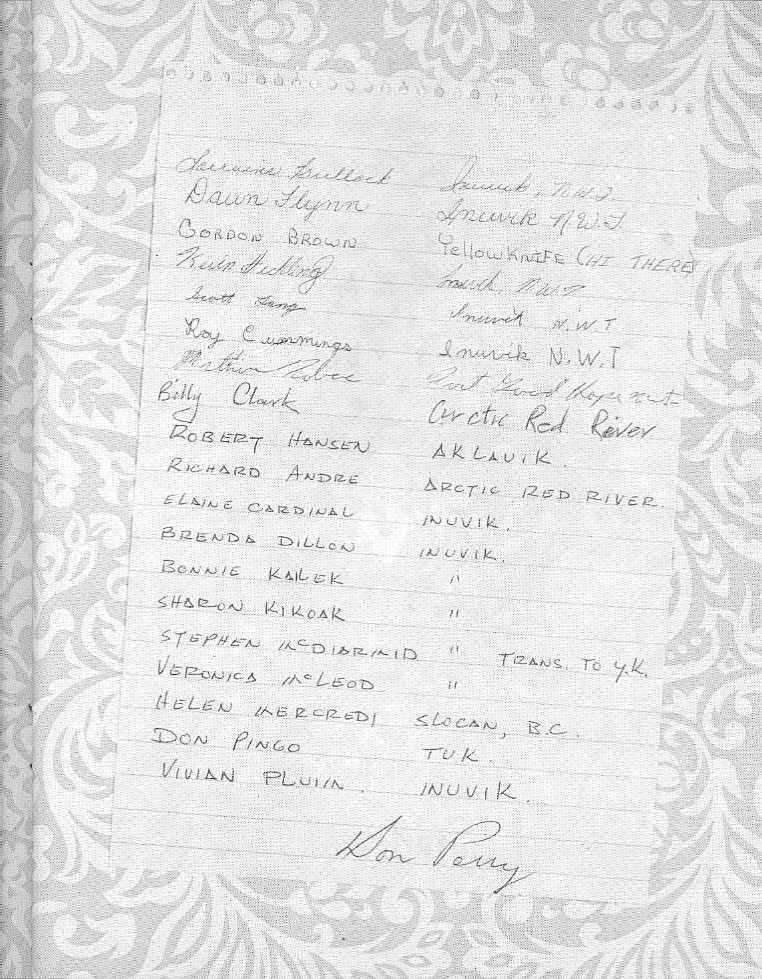 Lorraine Bullock Inuvik, N.W.T.
Dawn Flynn Inuvik N.W.T
GORDON BROWN YellowKNIFE (HI THERE)
Inuvik, N.W.T
Scott Lang Inuvik N.W.T
Roy Cummings Inuvik N.W.T
Fort Good Hope nwt
Billy Clark Arctic Red River
ROBERT HANSEN AKLAVIK.
RICHARD ANDRE ARCTIC RED RIVER.
ELAINE CARDINAL INUVIK.
BRENDA DILLON INUVIK.
BONNIE KAILEK "
SHARON KIKOAK "
STEPHEN McDIARMID " TRANS. TO Y.K.
VERONICA McLEOD "
HELEN MERCREDI SLOCAN, B.C.
DON PINGO TUK.
VIVIAN PLUIM. INUVIK.
Don Perry